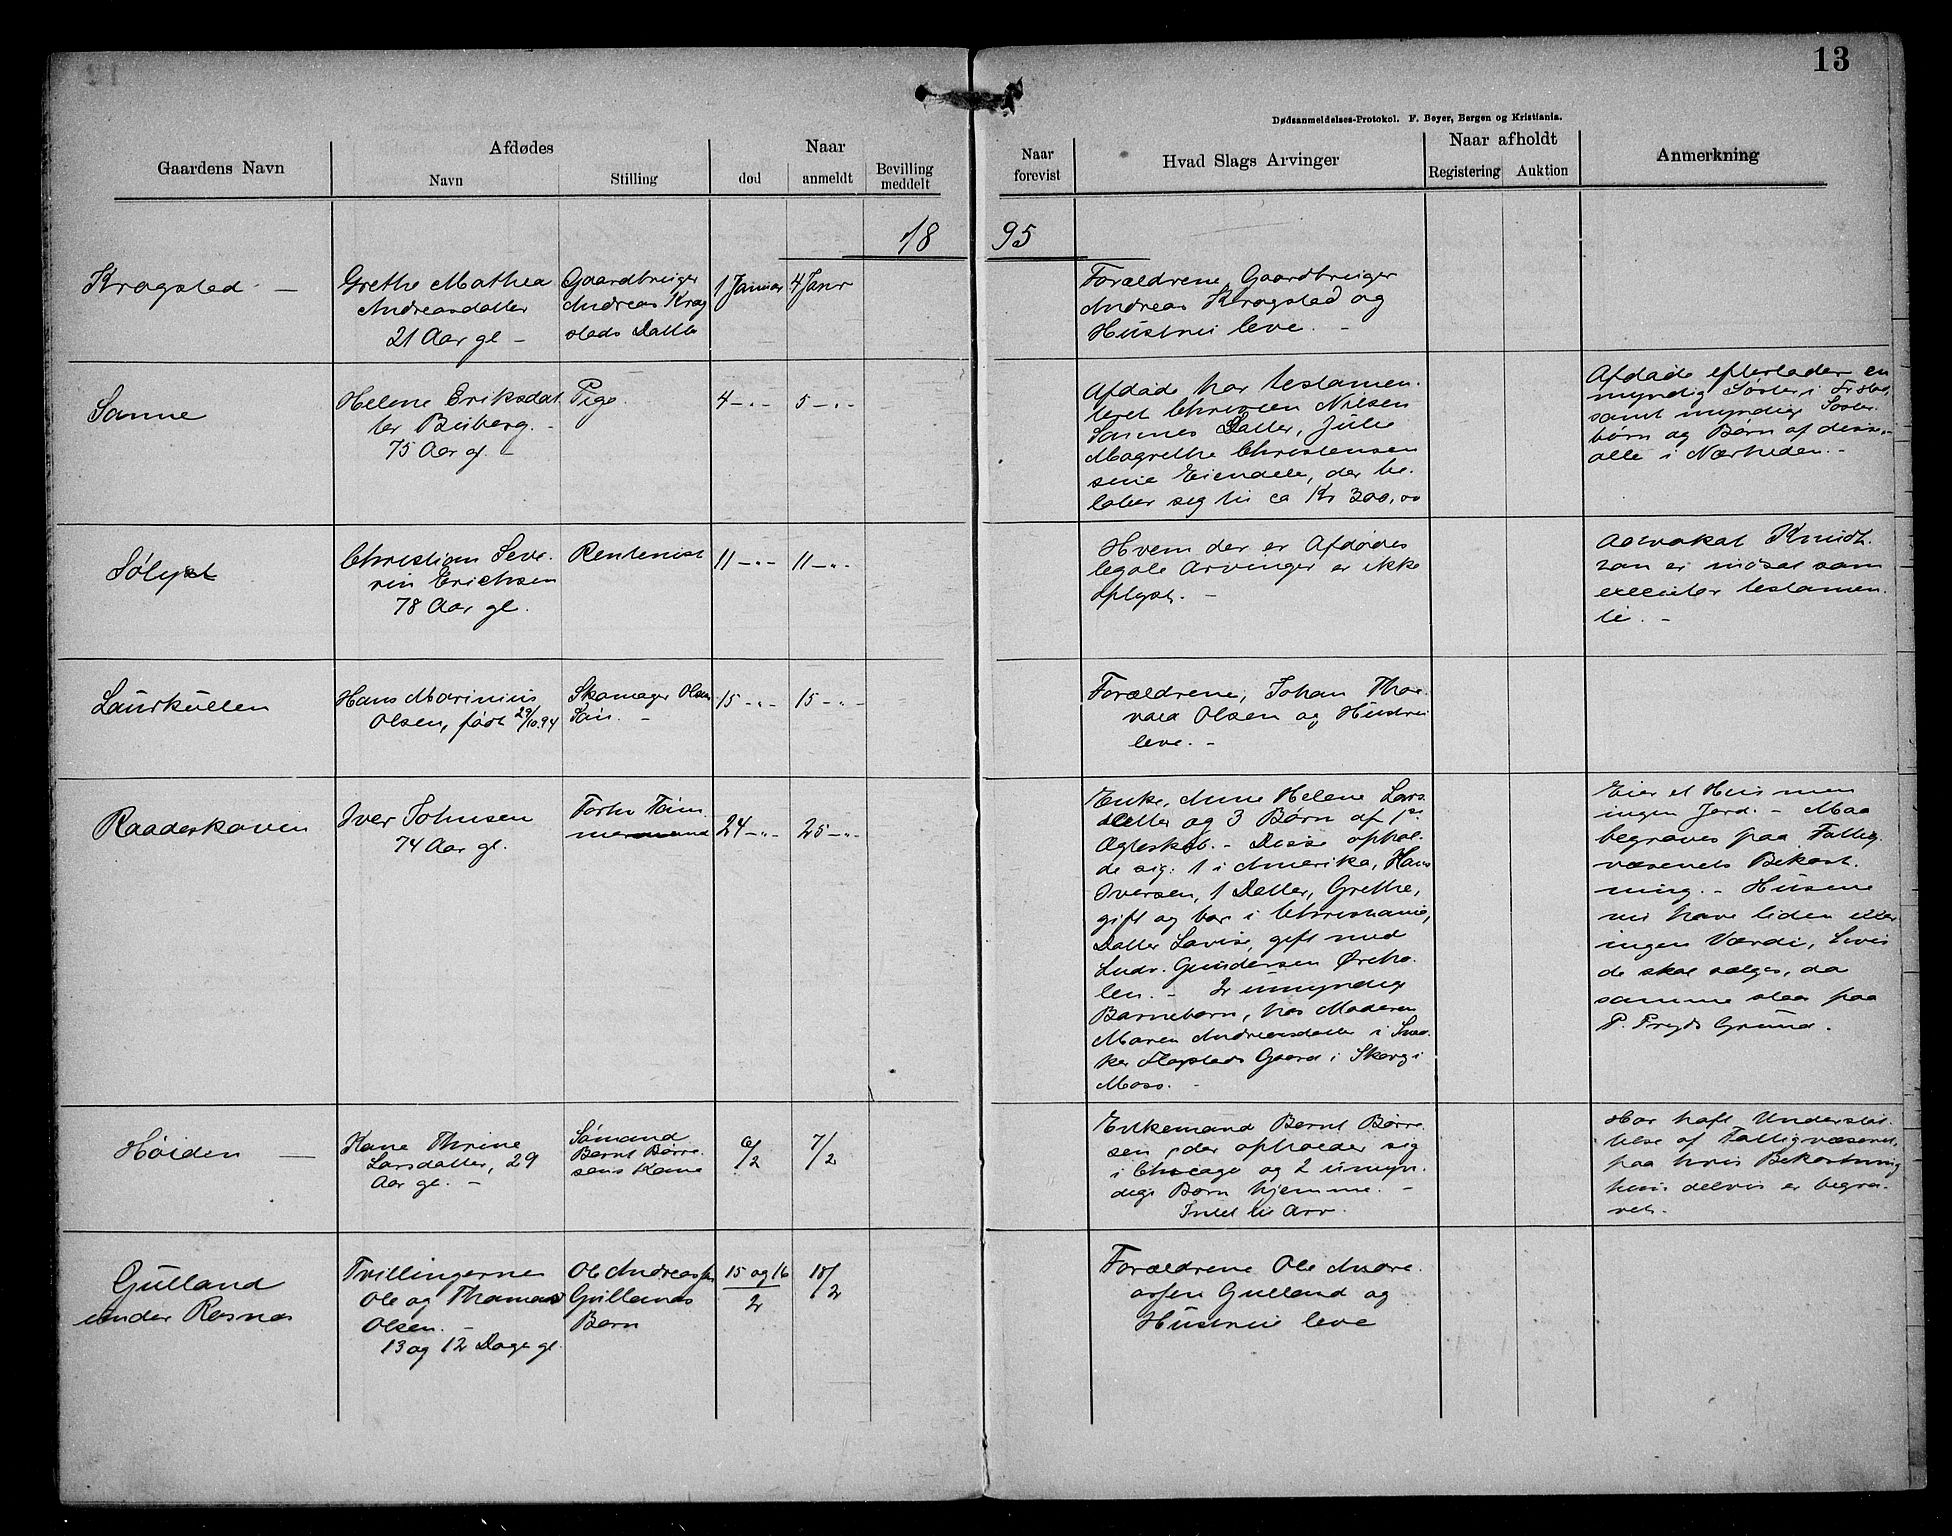 13
Dødsanmeldelses-Protokol. F. Beyer, Bergen og Kristiania.
Gaardens Navn
Afdødes
Navn
Stilling
Naar
død
anmeldt
Bevilling
meddelt
Naar
forevist
Hvad Slags Arvinger
Naar afholdt
Registering
Auktion
Anmerkning
18 95
Krogstad —
Grethe Mathea
Andreasdatter
21 Aar gl —
Gaardbruiger
Andreas Krog
stads Datter
1 Januar
4 Janr
Forældrene, Gaardbruiger
Andreas Krogstad og
Hustrui leve. —
Sanne
Helene Eriksdat
ter Buberg. —
75 Aar gl. —
Pige.
4 —"—
5 —"—
Afdøde har testamen
teret Christen Nilsen
Sannes Datter, Julie
Magrethe Christensen
sine Eiendele, der be
løber sig til ca Kr 300,00
Afdøde efterlader en
myndig Søster, i
samt myndige Søster
børn og Børn af disse, —
alle i Nærheden. —
Sølyst
Christian Seve
rin Erichsen
78 Aar gl.
Rentenist
11 —"—
11 —"—
Hvem der er Afdødes
legale Arvinger er ikke
oplyst. —
Advokat Knudt
zon er indsat som
executor testamen
ti. —
Laurkullen
Hans Marinius
Olsen, født 29/10.94
Skomager Olsens
Søn. —
15 —"—
15 —"—
Forældrene, Johan Thor
vald Olsen og Hustrui
leve. —
Raadeskoven
Iver Johnsen
74 Aar gl.
Forhv Tøm
mermand
24 —"—
25 —"—
Enke, Anne Helene Lars
datter og 3 Børn af
Ægteskab. — Disse ophol
de sig: 1 i Amerika, Hans
Iversen, 1 Datter, Grethe,
gift og bor i Christiania,
Datter Lovise, gift med
Ludv. Gundersen Øreho
len. — 2 umyndige
Børnebørn, hos Moderen
Maren Andreasdatter i
ker Hopstads Gaard i Skoggi
Moss. —
Eier et Hus men
ingen Jord. — Maa
begraves paa Fattig
væsenets Bekost
ning. — Husene
vil have liden eller
ingen Værdi, hvis
de skal sælges, da
samme staar paa
P. Fryds Grund.
Høiden —
Kone Thrine
Larsdatter, 29
Aar gl. —
Sømand
Bernt Børre
sens Kone
6/2
7/2
Enkemand Bernt Børre
sen, der opholder sig
i Chicago og 2 umyn
dige Børn hjemme. —
Intet til Arv.
Har haft Understøt
telse af Fattigvæsenet,
paa hvis Bekostning
hun delvis er begra
vet.
Gulland
under Rosnes
Tvillingerne
Ole og Thomas
Olsen. —
13 og 12 Dage gl
Ole Andreassen
Gullands
Børn
15 og 16
2
18/2
Forældrene Ole Andre
assen Gulland og
Hustrui leve